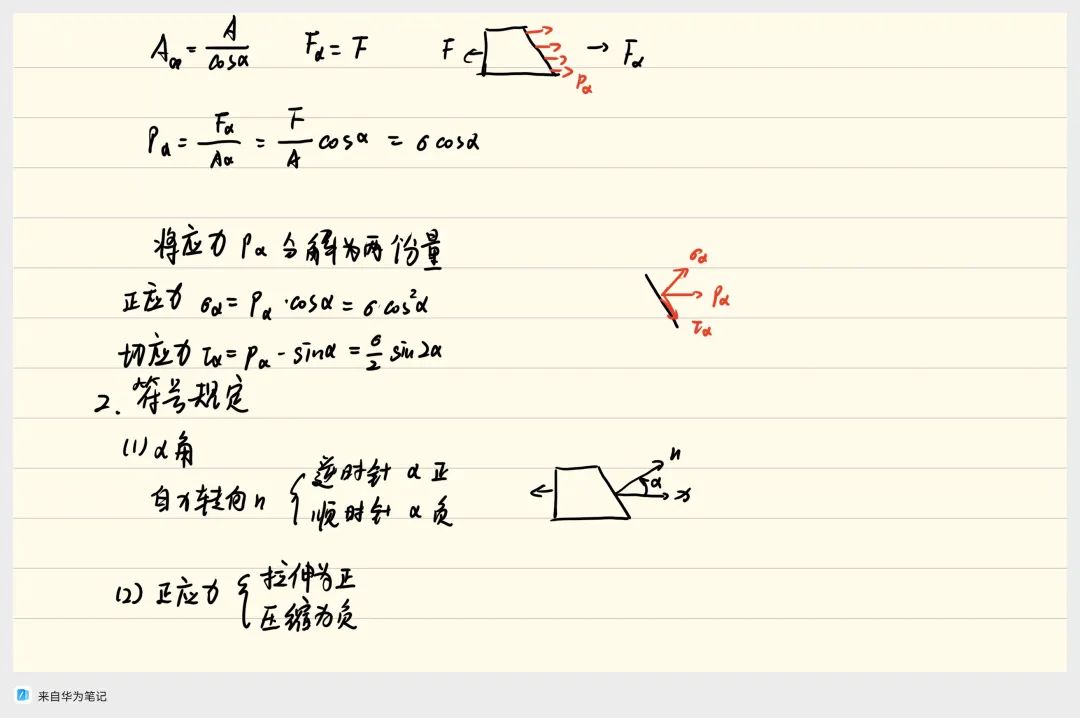 Aα = A/cosα Fα = F F Fα
pα
Pα = Fα/Aα = F/A cosα = σ cosα
将应力 Pα 分解为两份量
σα
正应力 σα = Pα · cosα = σ cos²α Pα
τα
切应力 τα = Pα - sinα = σ/2 sin2α
2. 符号规定
(1) α角
自x转向n { 逆时针 α 正
顺时针 α 负
n
α
x
(2) 正应力 { 拉伸为正
压缩为负
来自华为笔记